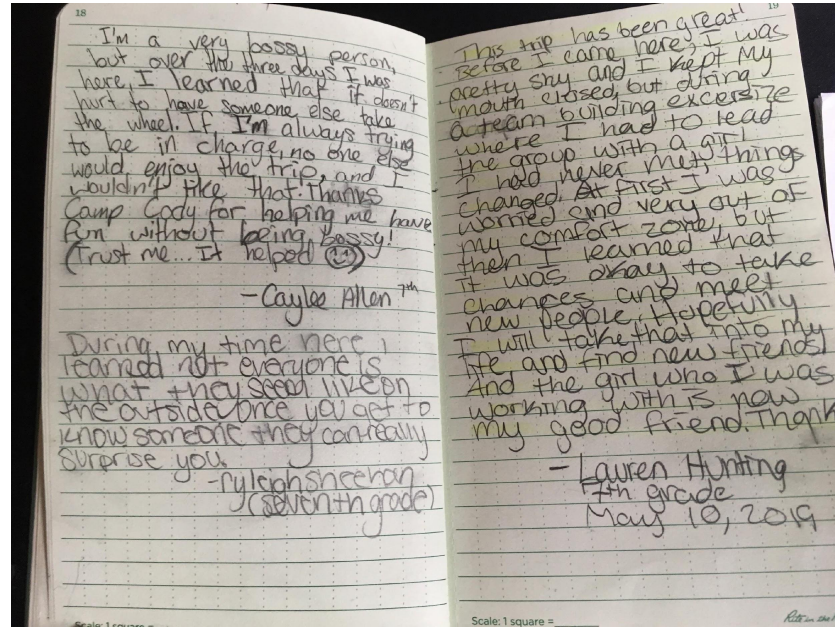 18
I'm a very bossy person,
but over the three days I was
here, I learned that it doesn't
hurt to have someone else take
the wheel. If I'm always trying
to be in charge, no one else
would enjoy the trip, and I
wouldn't like that. Thanks
Camp Cody for helping me have
fun without being bossy!
(Trust me... It helped ☺)
-Caylee Allen 7th
During my time here i
learned not everyone is
what they seed like on
the outside, once you get to
know someone they can really
surprise you.
-ryleigh sheehan
(seventh grade)
Scale: 1 square =
19
This trip has been great!
Before I came here, I was
pretty shy and I kept my
mouth closed, but during
a team building excersize
where I had to lead
the group with a girl
I had never met, things
changed. At first I was
worried and very out of
my comfort zone, but
then I learned that
it was okay to take
chances and meet
new people. Hopefully
I will take that into my
life and find new friends!
And the girl who I was
working with is now
my good friend. Thank
-Lauren Hunting
7th grade
May 10, 2019
Scale: 1 square =
Rite in the